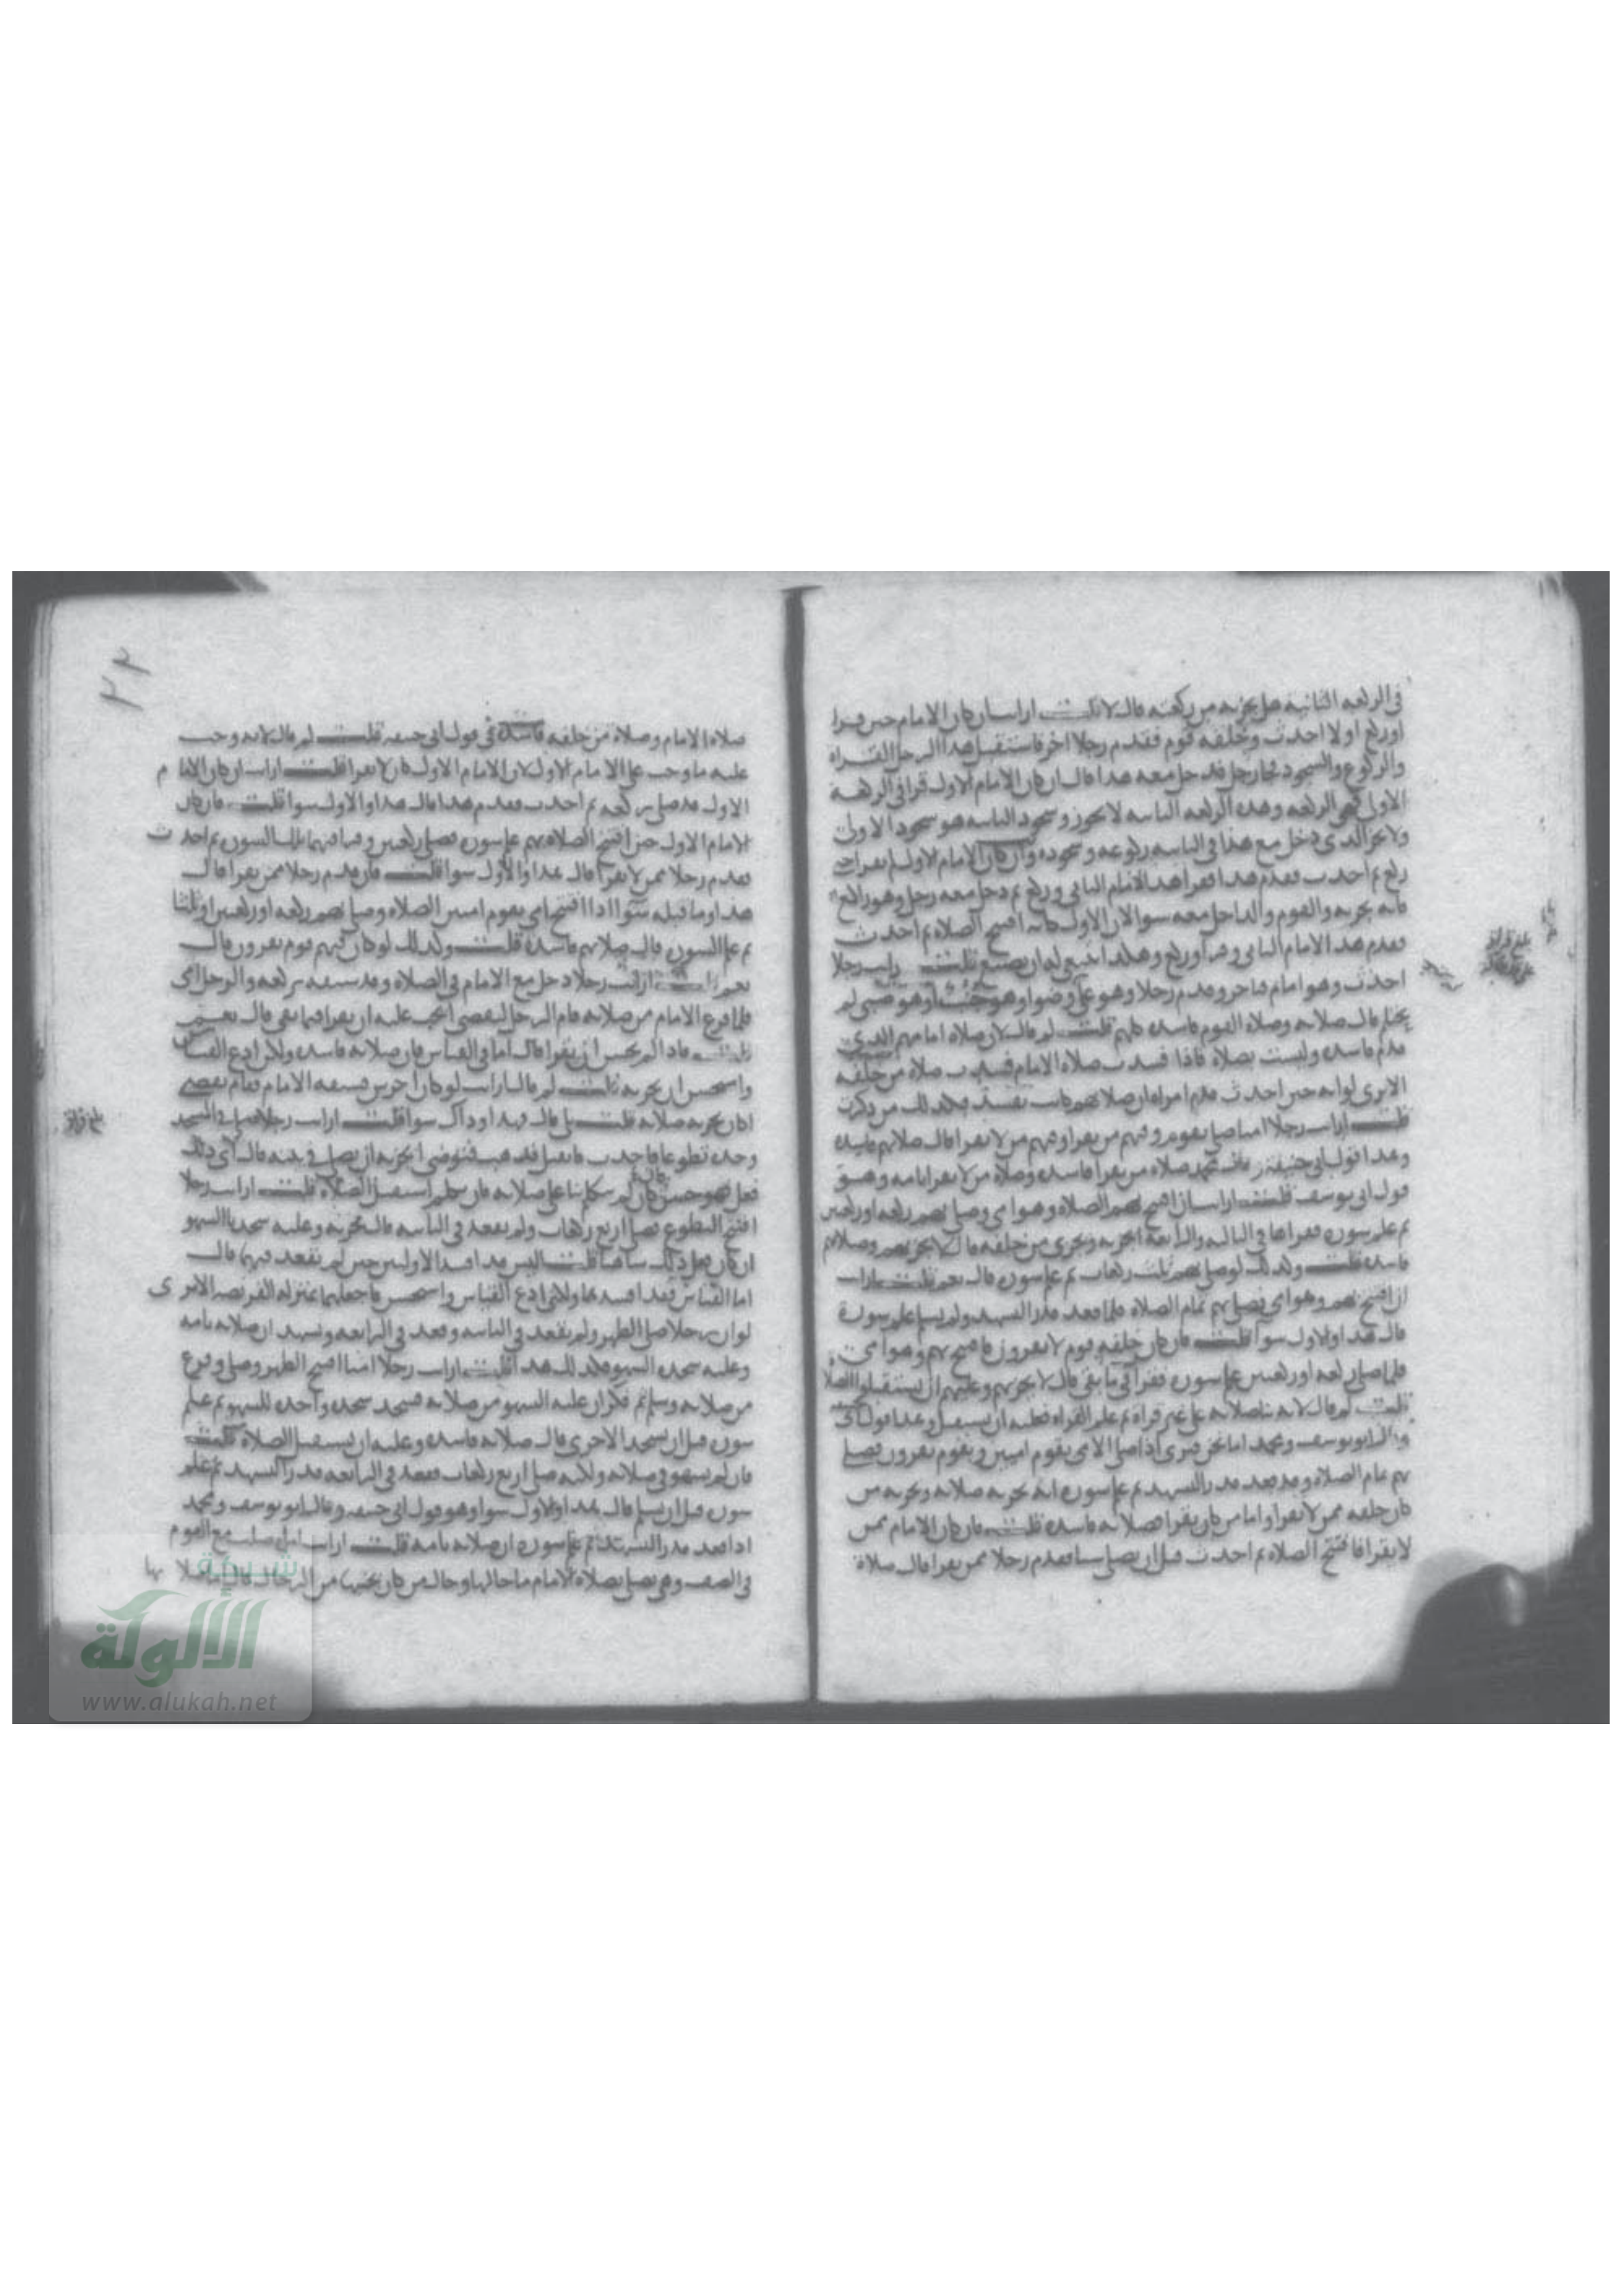 في الركعه الثانيه هل يجزيه من ركعته قال لا قلت ارايت ان كان الامام حين قرا
اوركع اولا احدث وخلفه قوم فقدم رجلا اخر فاستقبل هذا الرجل القراه
والركوع والسجود فجا رجل فدخل معه هذا قال ان كان الامام الاول قرا في الركعة
الاولى فهي الركعه وهده الركعه الثانيه لا يجوز وسجود الثانيه هو سجود الاولى
ولا يجزي الذي دخل مع هذا في الثانيه ركوعه وسجوده وان كان الامام الاول لم يقرا حين
ركع ثم احدث فقدم هذا فقرا هذا الامام الثاني وركع ثم دخل معه رجل وهو راكع
فانه يجزيه والقوم والداخل معه سوا لان الاول كانه افتتح الصلاه ثم احدث
فقدم هذا الامام الثاني وقرا وركع وهكذا ينبغي له ان يصنع قلت ارايت رجلا
احدث وهو امام فتاخر وقدم رجلا وهو على وضوا وهو جنب او هو صبي لم
يحتلم قال صلاته وصلاة القوم فاسده كلهم قلت لم قال لان صلاة امامهم الذي
قدم فاسده وليست بصلاة فاذا فسدت صلاه الامام فسدت صلاة من خلفه
الا ترى لو انه حين احدث قدم امراه ان صلاتهم كانت تفسد فكذلك من ذكرت
قلت ارايت رجلا اميا صلى بقوم وفيهم من يقرا وفيهم من لا يقرا قال صلاتهم فاسده
وهذا قول ابي حنيفة وقال محمد صلاه من يقرا فاسده وصلاة من لا يقرا تامه وهو
قول ابي يوسف قلت ارايت ان افتتح بهم الصلاه وهو امي وصلى بهم ركعه او ركعتين
ثم علم سوره فقراها في الثالثه والرابعة ايجزيه ويجزي من خلفه قال لا يجزيهم وصلاتهم
فاسده قلت وكذلك لو صلى بهم ثلاث ركعات ثم علم سوره قال نعم قلت ارايت
ان افتتح بهم وهو امي فصلى بهم تمام الصلاه فلما قعد قدر التشهد ولم يسلم علم سورة
قال هذا والاول سوا قلت فان كان خلفه قوم لا يقرون فافتتح بهم وهو امي
فلما صلى ركعه او ركعتين علم سوره فقرا في ما بقي قال لا يجزيهم وعليهم ان يستقبلوا الصلاة
قلت لم قال لانه بنا صلاته على غير قراة ثم علم القراه فعليه ان يستقبل وهذا قول ابي حنيفة
وقال ابو يوسف ومحمد اما نحن فنرى اذا صلى الامي بقوم اميين وبقوم يقرون فصلى
بهم تمام الصلاه وقد قعد قدر التشهد ثم علم سوره انه يجزيه صلاته ويجزيه من
كان خلفه ممن لا يقرا واما من كان يقرا فصلاته فاسده قلت فان كان الامام ممن
لا يقرا فافتتح الصلاه ثم احدث قبل ان يصلي شيا فقدم رجلا ممن يقرا قال صلاة
بلغ قراة
٢٣
صلاه الامام وصلاة من خلفه فاسدة في قول ابي حنيفه قلت لم قال لانه وجب
عليه ما وجب على الامام الاول لان الامام الاول كان لا يقرا قلت ارايت ان كان الامام
الاول قد صلى ركعه ثم احدث فقدم هذا قال هذا والاول سوا قلت فان كان
الامام الاول حين افتتح الصلاه بهم علم سوره فصلى ركعتين وقرا فيهما بتلك السوره ثم احدث
فقدم رجلا ممن لا يقرا قال هذا والاول سوا قلت فان قدم رجلا ممن يقرا قال
هذا وما قبله سوا اذا افتتح امي بقوم اميين الصلاه وصلى بهم ركعه او ركعتين او ثلثا
ثم علم السوره قال صلاتهم فاسده قلت وكذلك لو كان فيهم قوم يقرون قال
نعم قلت ارايت رجلا دخل مع الامام في الصلاه وقد سبقه بركعه والرجل امي
فلما فرغ الامام من صلاته قام الرجل ليقضي ايجب عليه ان يقرا فيما بقي قال نعم
قلت فاذا لم يحسن ان يقرا قال اما في القياس فان صلاته فاسده ولكن ادع القياس
واستحسن ان يجزيه قلت لم قال ارايت لو كان اخرس فسبقه الامام فقام يقضي
اكان يجزيه صلاته قلت بلى قال فهذا وذاك سوا قلت ارايت رجلا صلى في المسجد
وحده تطوعا فاحدث فانفتل فذهب فتوضى ايجزيه ان يصلي في بيته قال اي ذلك
فعل فهو حسن فان لم يتكلم بنا على صلاته فان تكلم استقبل الصلاة قلت ارايت رجلا
افتتح التطوع فصلى اربع ركعات ولم يقعد في الثانيه قال يجزيه وعليه سجدتا السهو
ان كان فعل ذلك ساهيا قلت اليس قد افسد الاوليين حين لم يقعد فيهما قال
اما القياس فقد افسدهما ولكني ادع القياس واستحسن فاجعلهما بمنزله الفريضه الا ترى
لو ان رجلا صلى الظهر ولم يقعد في الثانيه وقعد في الرابعه وتشهد ان صلاته تامه
وعليه سجدتا السهو فكذلك هذا قلت ارايت رجلا اميا افتتح الظهر وصلى وفرغ
من صلاته وسلم ثم ذكر ان عليه السهو من صلاته فسجد سجده واحده للسهو ثم علم
سوره قبل ان يسجد الاخرى قال صلاته فاسده وعليه ان يستقبل الصلاه قلت
فان لم يسهو في صلاته ولكنه صلى اربع ركعات فقعد في الرابعه قدر التشهد ثم علم
سوره قبل ان يسلم قال هذا والاول سوا وهو قول ابي حنيفه وقال ابو يوسف ومحمد
اذا قعد قدر التشهد ثم علم سوره ان صلاته تامه قلت ارايت امراه صلت مع القوم
في الصف وهي تصلي بصلاة الامام ما حالها وحال من كان بجنبها من الرجال قال اما صلاتها
بلغ قراة
شبكة
الألوكة
www.alukah.net